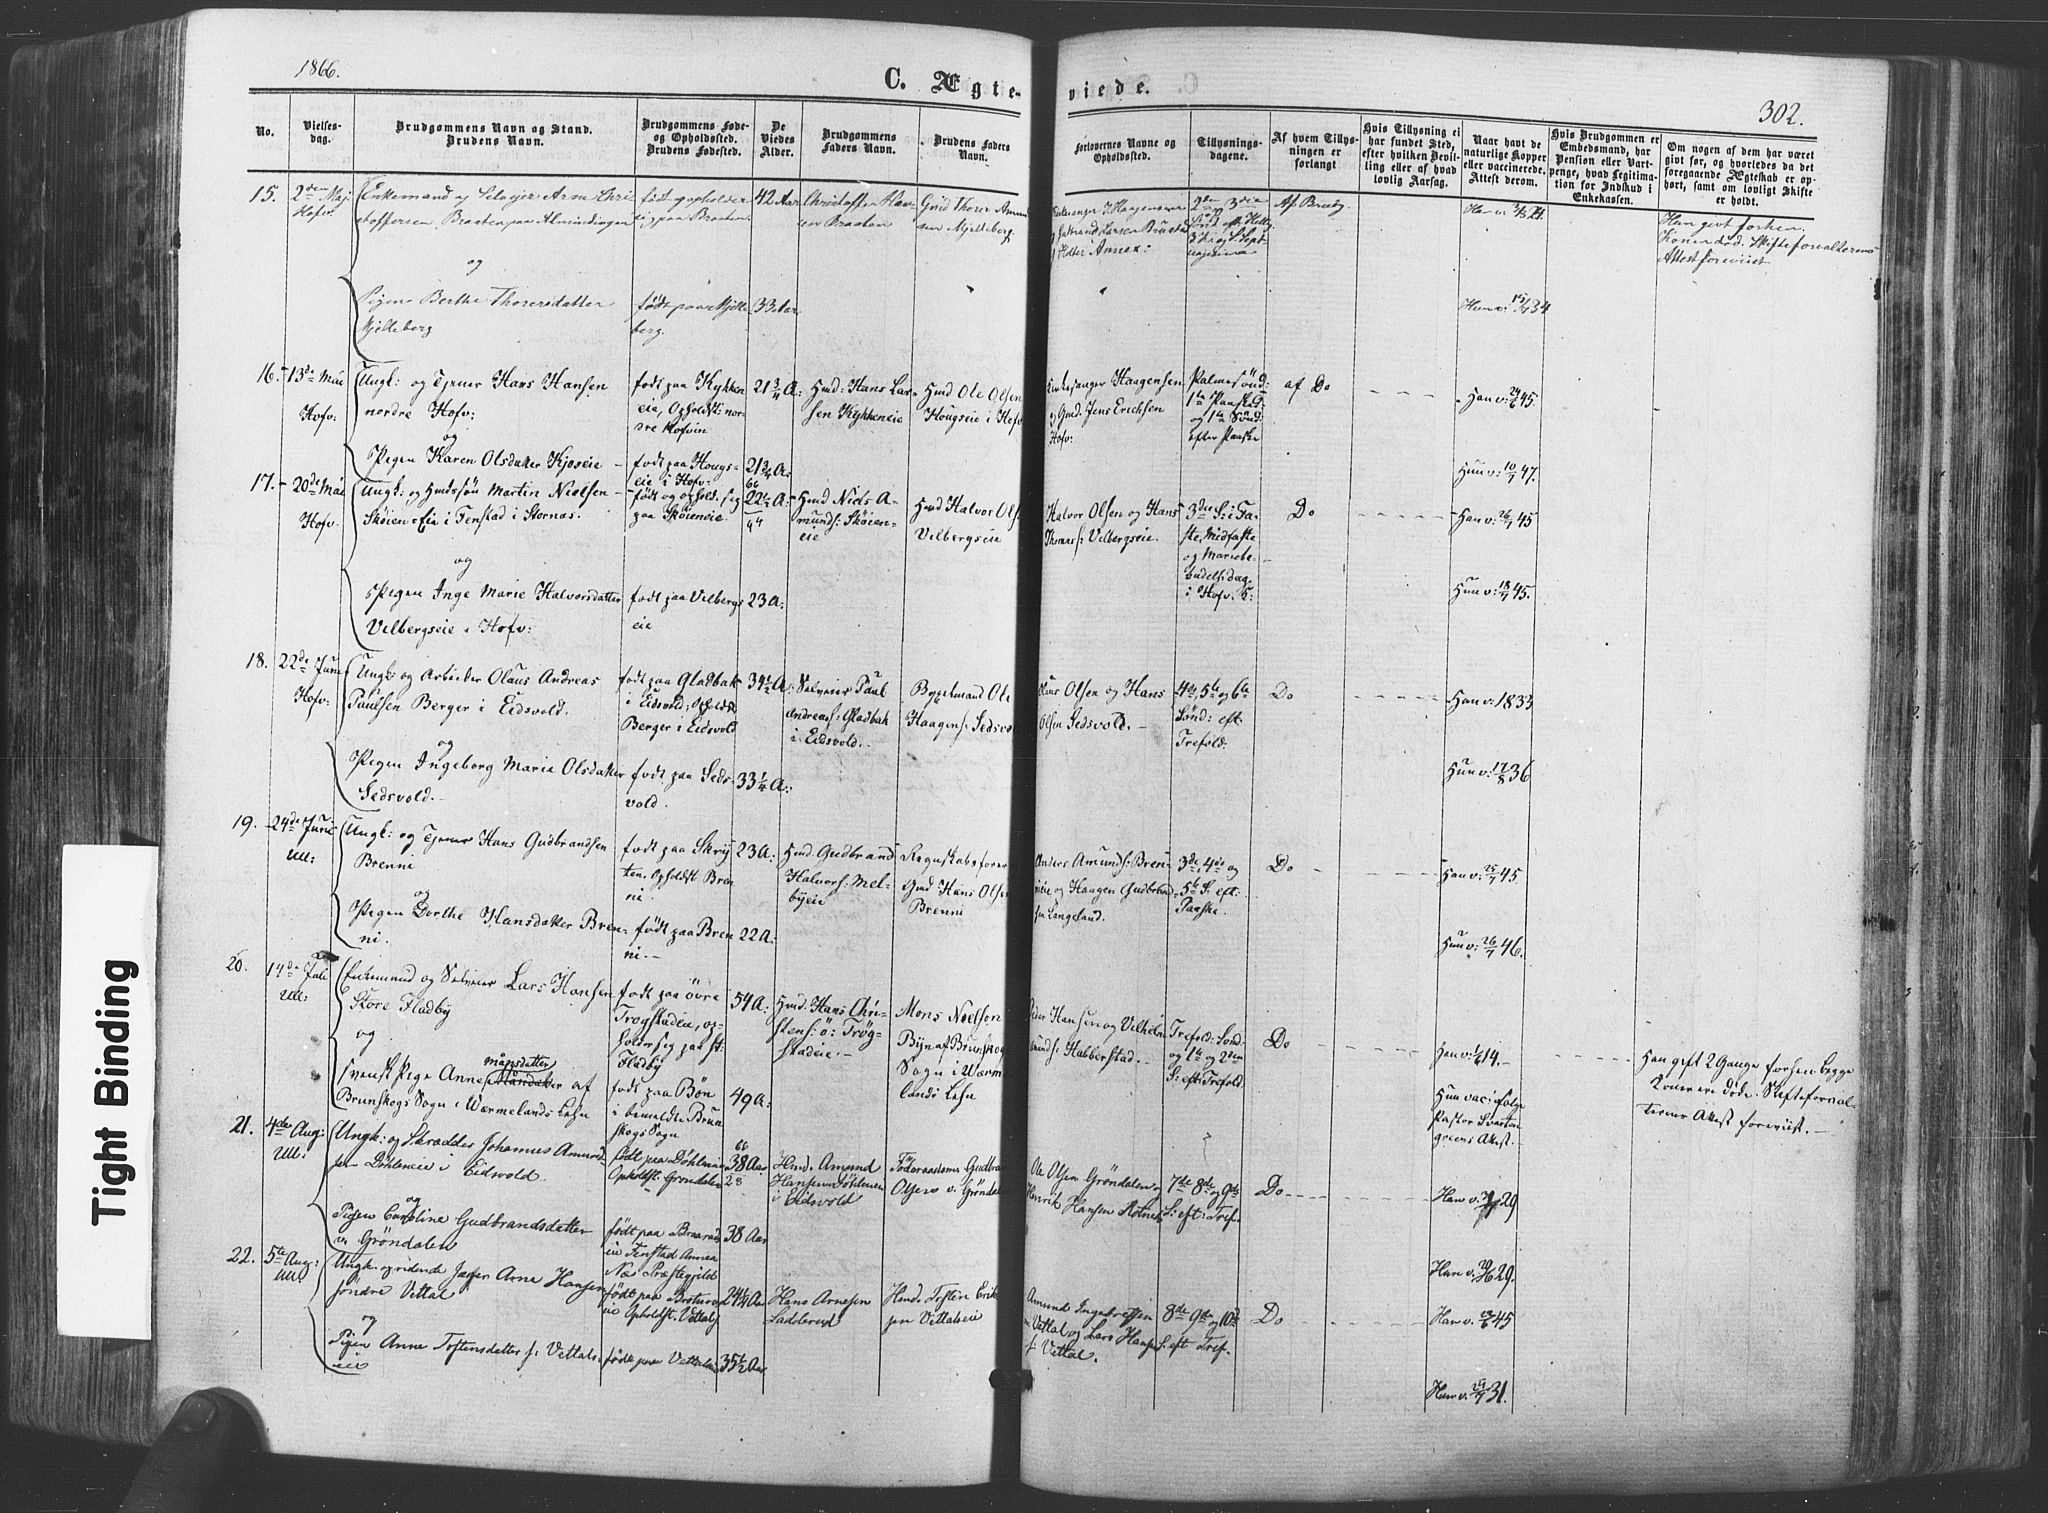 1866.
C. Ægte-
viede.
302.
No.
Vielses-
dag.
Brudgommens Navn og Stand.
Brudens Navn.
Brudgommens Føde-
og Opholdssted.
Brudens Fødested.
De
Viedes
Alder.
Brudgommens
Faders Navn.
Brudens Faders
Navn.
Forlovernes Navne og
Opholdssted.
Tillysnings-
dagene.
Af hvem Tillys-
ningen er
forlangt
Hvis Tillysning ei
har fundet Sted,
efter hvilken Bevil-
ling eller af hvad
lovlig Aarsag.
Naar havt de
naturlige Kopper
eller vaccinerede.
Attest derom.
Hvis Brudgommen er
Embedsmand, har
Pension eller Vart-
penge, hvad Legitima-
tion for Indskud i
Enkekassen.
Om nogen af dem har været
gift før, og hvorledes da det
foregaaende Ægteskab er op-
hørt, samt om lovligt Skifte
er holdt.
15. 2den Maj
Hofv:
Enkemand og Selvejer Arne Chri
stoffersen, Braaten paa Almindingen
og
Pigen Berthe Thoresdatter
Mjelleberg
født og opholder
sig paa Braaten
født paa Mjelle
berg.
42 Aar
33 Aar
Christoffer
sen Braaten
Gmd Thorer Amun
sen Mjelleberg.
Kirkesanger Haagensen
og Gulbrand Larsen Braaten
Holter Annex:
2den og 3die
Af Brudg.
Han givt førhen
Konen død. Skifteforvalterens
Attest foreviist.
16. 13de Mai
Hofv:
Ungk: og Tjener Hans Hansen
nordre Hofv:
og
Pigen Karen Olsdatter Kjoseie
født paa Kykken
eie, Opholdst: nor-
dre Hofvin
født paa Hougs-
eie i Hofv:
21 3/4 A:
21 3/4 A:
Hmd: Hans Lar-
sen Kykkeneie
Hmd Ole Olsen
Hougseie i Hofv
Kirkesanger Haagensen
og Gmd. Jens Ericksen
Hofv:
Palmesönd:
1ste Paaske
og 1ste Sönd:
efter Paaske
af Do
Han v: 24/6 45.
Hun v: 10/7 47.
17. 20de Mai
Hofv.
Ungk: og Hmdssön Martin Nielsen
Skøien-Eie i Tenstad i Stornæs.
og
Pigen Inge Marie Halvorsdatter
Vilbergseie i Hofv:
født og ophold. sig
paa Skøieneie
født paa Vilbergs
eie
66
22 1/2 A:
44
23 A:
Hmd Niels A-
munds: Skøien-
eie
Hmd Halvor Ols
Vilbergseie
Halvor Olsen og Hans
Thomass: Vilbergseie.
3die S: i Fa-
ste, Midfaste
og Mariebe-
budels: dag
i Hofv: K:
Do
Han v: 26/7 45
Hun v: 18/7 45.
18. 22de Juni
Hofv:
Ungk: og Arbeider Olaus Andreas
Paulsen Berger i Eidsvold.
og
Pigen Ingeborg Marie Olsdatter
Sedsvold.
født paa Gladbak
i Eidsvold; Opholdst
Berger i Eidsvold
født paa Seds-
vold.
34 1/2 A:
33 1/4 A:
Selveier Paul
Andreas: Gladbak
i Eidsvold.
Bygselmand Ole
Haagens: Sedsvo
Olaus Olsen og Hans
Olsen Sedsvold.
4de, 5te og 6te
Sönd: eft.
Trefold:
Do
Han v: 1833
Hun v: 17/8 36
19. 24de Juni
Ull:
Ungk: og Tjener Hans Gudbrandsen
Brenni
og
Pigen Dorthe Hansdatter Bren-
ni.
født paa Skrij
ten, Opholdst. Bren
ni.
født paa Bren
ni.
23 A:
22 A:
Hmd. Gudbrand
Halvors: Mel-
byeie
Regnskabsfører
Gmd Hans Olsen
Brenni
Anders Amunds: Bren-
nieie og Haagen Gudbrand
sen Langeland.
3die, 4de og
5te S. eft:
Paaske.
Do
Han v: 25/7 45.
Hun v: 26/7 46.
20. 14de Juli
Ull:
Enkemand og Selveier Lars Hansen
Store Fladby
og
svensk Pige Anne Månsdatter af
Brunskogs Sogn i Wærmelands Lehn
født paa övre
Trøgstadeie, op-
holder sig paa St:
Fladby
født paa Bön
i bemeldte Brun
skogs Sogn
54 A:
49 A:
Hmd. Hans Chri-
stens: ö: Trøg-
stadeie.
Mons Nielson
Byn af Brunskog
Sogn i Wærm-
lands Lehn
Peder Hansen og Vilhelm
Amunds: Habberstad.
Trefold: Sönd:
og 1ste og 2den
S: eft: Trefold.
Do
Han v: 14.
Hun vac: ifölge
Pastor Svarten
greens Attest.
Han gift 2 Gange forhen begge
Koner ere döde. Skifteforval-
terens Attest foreviist.
21. 4de Aug:
Ull:
Ungk: og Skrædder Johannes Amund
sen Döhleneie i Eidsvold.
og
Pigen Caroline Gudbrandsdatter
v. Gröndalen
født paa Döhlenei
Opholdst. Gröndalen
født paa Braaraa
eie Tenstad Annex
Næs Præstegjeld
66
38 Aar
28
38 Aar
Hmd. Amund
Hansen Döhleneie
i Eidsvold
Föderaadsmd. Gudbran
Olsen v. Gröndal
Ole Olsen Gröndalen og
Henrik Hansen Rotnes
7de 8de og 9de
S: eft: Tref.
Do
Han v. 29
Hun v. 29.
22. 5te Aug:
Ull
Ungk. og ridende Jæger Arne Hansen
söndre Vettal
og
Pigen Anne Tostensdatter s: Vettals-
eie
født paa Brotnes
eie Opholdst. Vettal
født paa Vettalsei
24 1/4 Aar
35 1/2 Aar
Hans Arnesen
Ladderud
Hmd. Tosten Erik
sen Vettalseie
Amund Ingebretsen
n. Vettal og Lars Hanse
s: Vettal.
8de 9de og 10de
S: eft Tref.
Do
Han v. 45
Hun v. 31.
Tight Binding